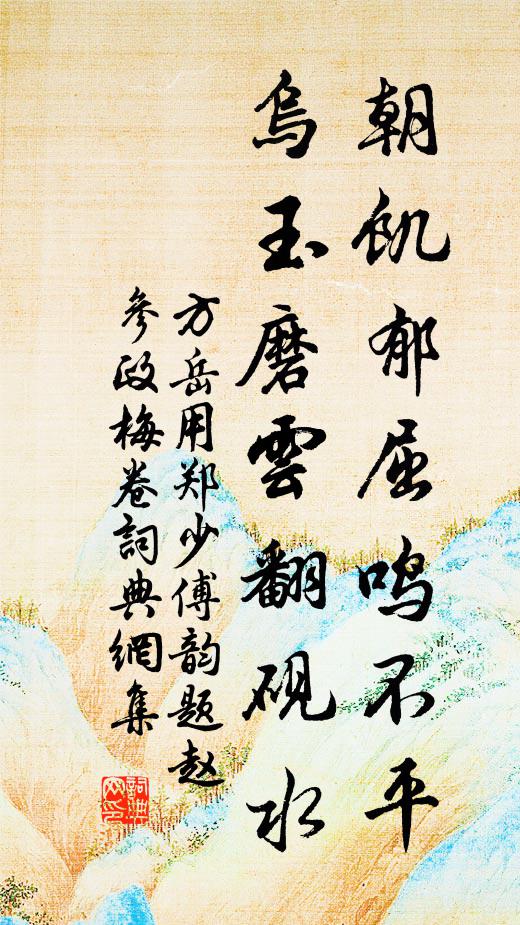 朝饥郁屈鸣不平
乌玉磨雲翻砚水
方岳用郑少傅韵题赵
参政梅卷詞典網集
詞典
网印